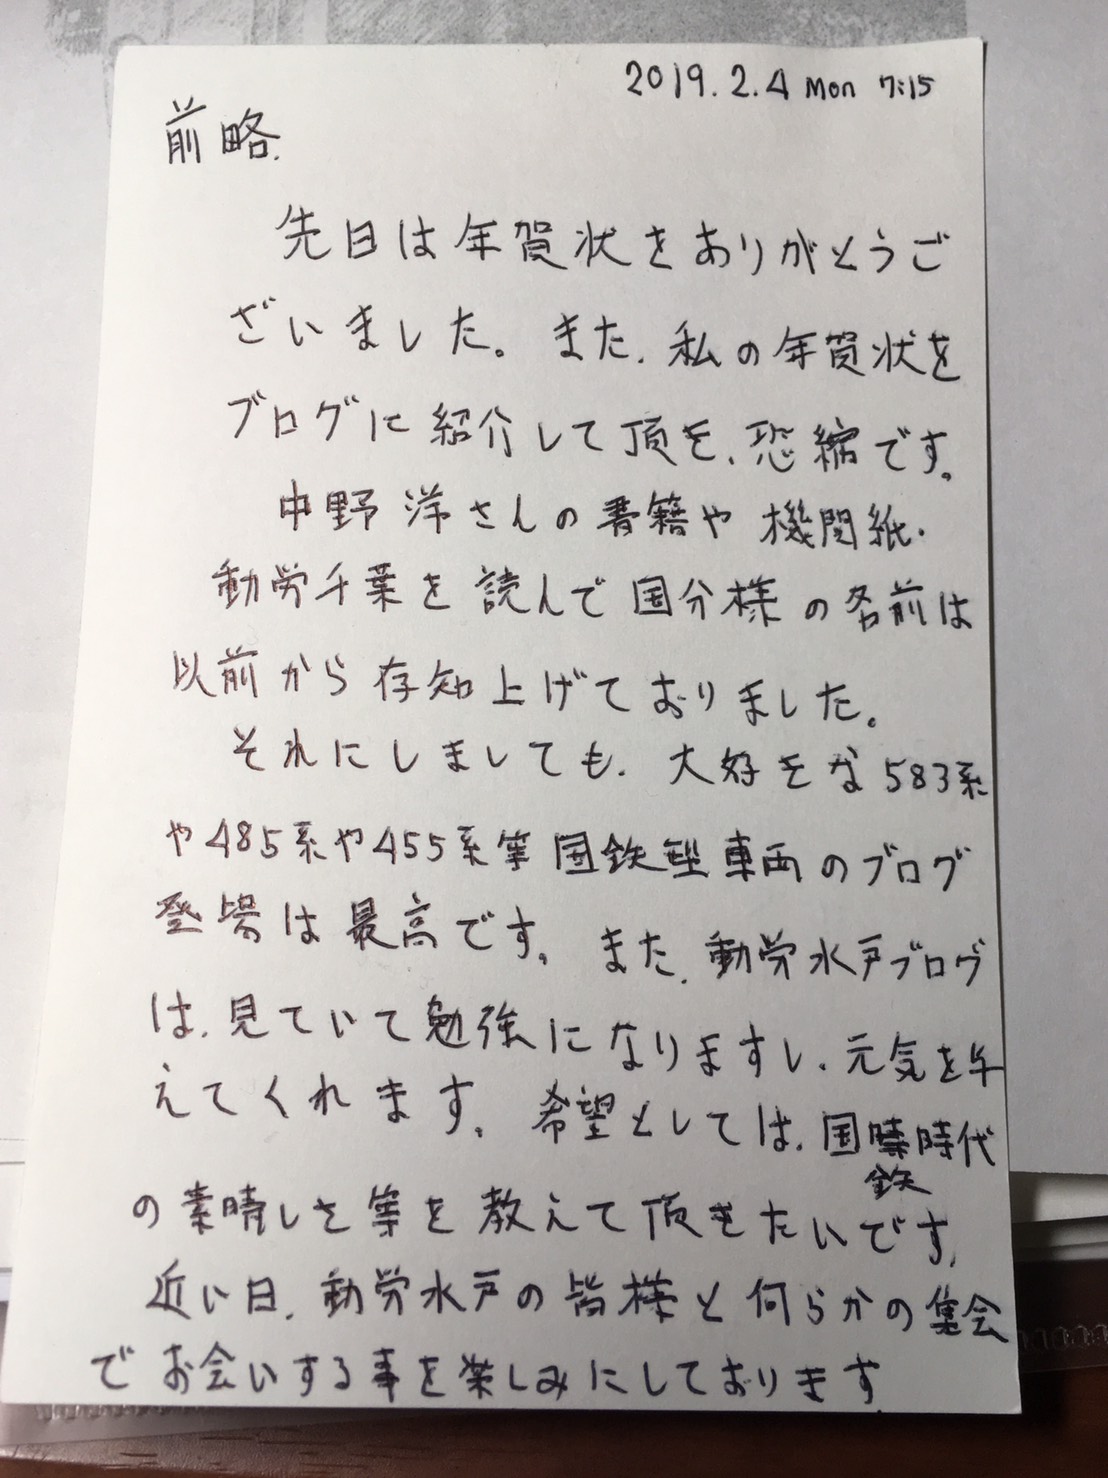 2019.2.4 Mon 7:15
前略.
先日は年賀状をありがとうご
ざいました。また、私の年賀状を
ブログに紹介して頂き、恐縮です。
中野洋さんの書籍や機関紙・
動労千葉を読んで国分様の名前は
以前から存知上げておりました。
それにしましても、大好きな583系
や485系や455系等国鉄型車両のブログ
登場は最高です。また、動労水戸ブログ
は、見ていて勉強になりますし、元気を与
えてくれます。希望としては、国鉄時代
の素晴しさ等を教えて頂きたいです。
近い日、動労水戸の皆様と何らかの集会
でお会いする事を楽しみにしております。